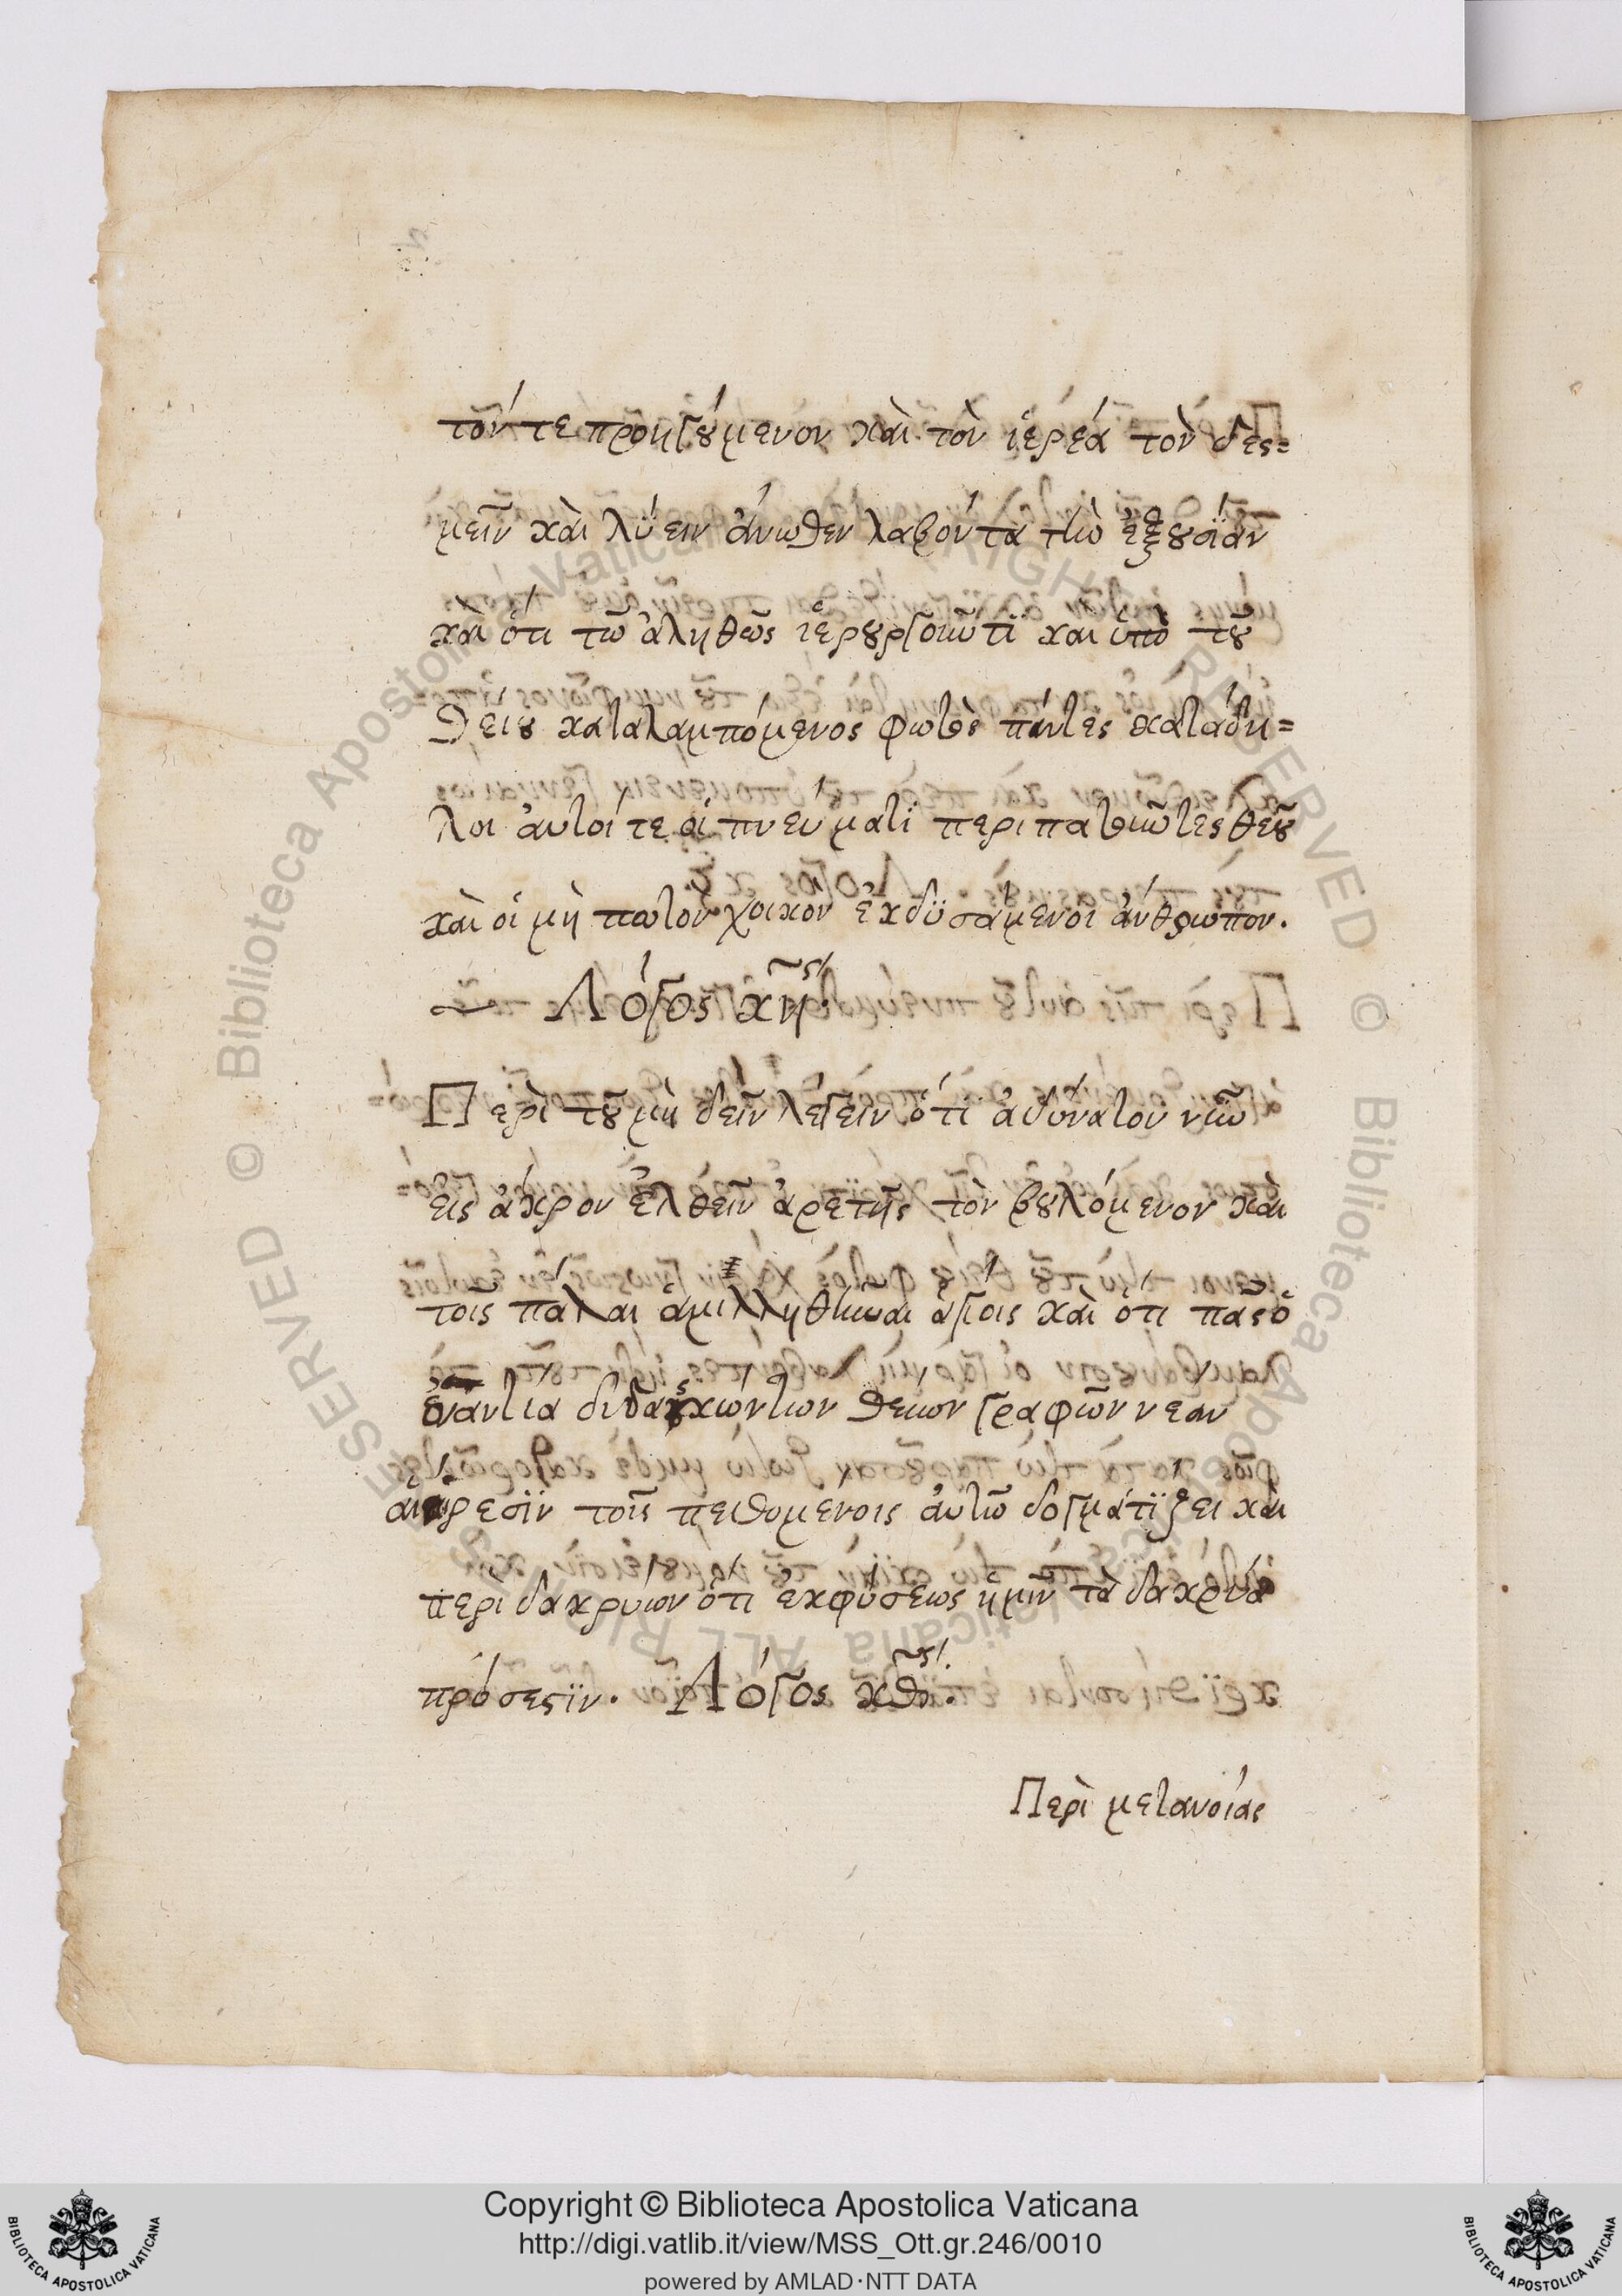 τόν τε προηγούμενον καὶ τὸν ἱερέα τὸν δεσ=
μεῖν καὶ λύειν ἄνωθεν λαβόντα τὴν ἐξουσίαν
καὶ ὅτι τῷ ἀληθῶς ἱερουργοῦντι καὶ ὑπὸ τοῦ
θείου καταλαμπόμενος φωτὸς πάντες κατάδη=
λοι αὐτοί τε οἱ πνεύματι περιπατοῦντες θεοῦ
καὶ οἱ μήπω τὸν χοικὸν ἐκδυσάμενοι ἄνθρωπον.
Λόγος κη^ς
Περὶ τοῦ μὴ δεῖν λέγειν ὅτι ἀδύνατον νῦν
εἰς ἄκρον ἐλθεῖν ἀρετῆς τὸν βουλόμενον καὶ
τοῖς πάλαι ἁμιλληθῆναι ἁγίοις καὶ ὅτι πᾶς ὁ
ἐναντία διδάσκων τῶν θείων γραφῶν νέαν
αἵρεσιν τοῖς πειθομένοις αὐτῷ δογματίζει καὶ
περὶ δακρύων ὅτι ἐκ φύσεως ἡμῖν τὰ δάκρυα
πρόσεστιν. Λόγος κθ^ς.
Περὶ μετανοίας
Copyright © Biblioteca Apostolica Vaticana
http://digi.vatlib.it/view/MSS_Ott.gr.246/0010
powered by AMLAD·NTT DATA
BIBLIOTECA APOSTOLICA VATICANA
BIBLIOTECA APOSTOLICA VATICANA
© Biblioteca Apostolica Vaticana ALL RIGHTS RESERVED